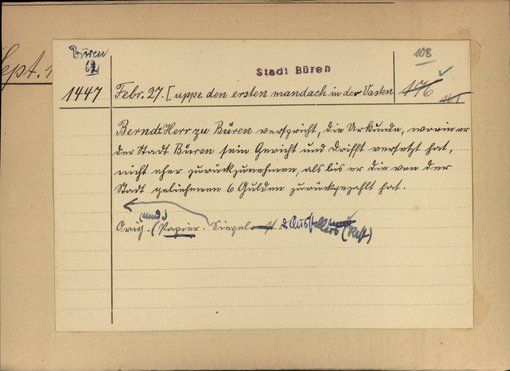 Büren
62
108
Stadt Büren
Sept. 1
1447 Febr. 27. [uppe den ersten mandach in der Vasten
176
Bernd Herr zu Büren verspricht, die Urkunde, worin er
der Stadt Büren sein Gericht und Drifft versetzt hat,
nicht eher zurückzunehmen, als bis er die von der
Stadt geliehenen 6 Gulden zurückgezahlt hat.
(mnd.)
Orig. (Papier. Siegelrest d. Ausstellers (Rest)